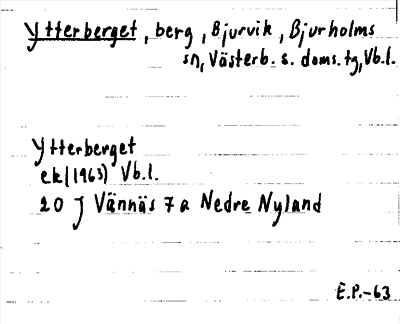 Ytterberget, berg, Bjurvik, Bjurholms
sn, Västerb. s. doms. tg, Vb.l.
Ytterberget
ek(1963) Vb.l.
20 J Vännäs 7 a Nedre Nyland
E.P.-63